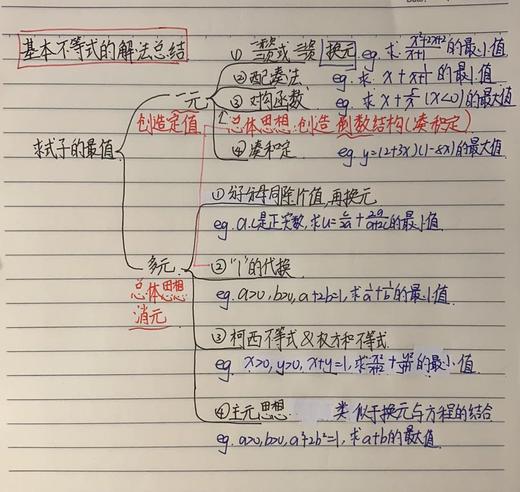 基本不等式的解法总结
求式子的最值
一元
创造定值
① 或 换元 eg. 求 (x²+2x+2)/(x+1) 的最小值
② 配凑法 eg. 求 的最小值
③ 对构函数 eg. 求 (x<0) 的最大值
总体思想: 创造 倒数结构(凑积定)
④ 凑和定 eg. y=(2+3x)(1-8x)的最大值
多元
总体思想
消元
① 分子分母同除 值,再换元
eg. 是正实数,求 的最小值
② "1"的代换
eg. a>0, b>0, a+2b=1, 求 1/a + 1/b 的最小值.
③ 柯西不等式&权方和不等式
eg. x>0, y>0, x+y=1, 求 的最小值
④ 主元思想 类似于换元与方程的结合
eg. a>0, b>0, a²+2b²=1, 求a+b的最大值